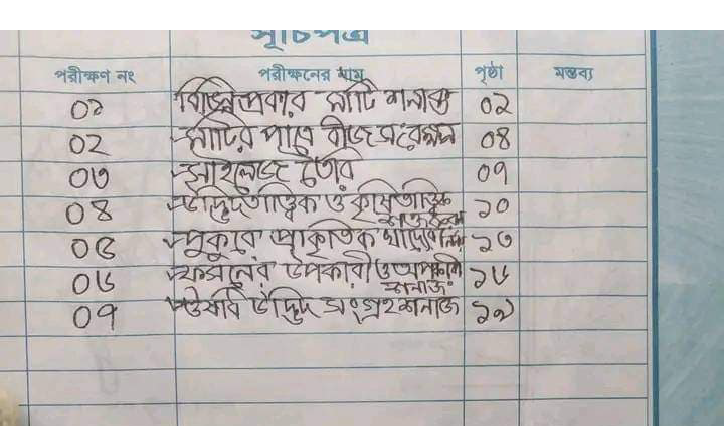 সূচিপত্র
পরীক্ষণ নং পরীক্ষনের নাম পৃষ্ঠা মন্তব্য
০১ বিভিন্ন প্রকার মাটি শনাক্ত ০২
০২ মাটির পাত্রে বীজ সংরক্ষন ০৪
০৩ সাইলেজ তৈরি ০৭
০৪ উদ্ভিদতাত্ত্বিক ও কৃষিতাত্ত্বিক ১০
০৫ পুকুরে প্রাকৃতিক ১৩
০৬ ফসলের উপকারী ও অপকারী ১৬
শনাক্ত
০৭ ঔষধি উদ্ভিদ সংগ্রহ শনাক্ত ১৯